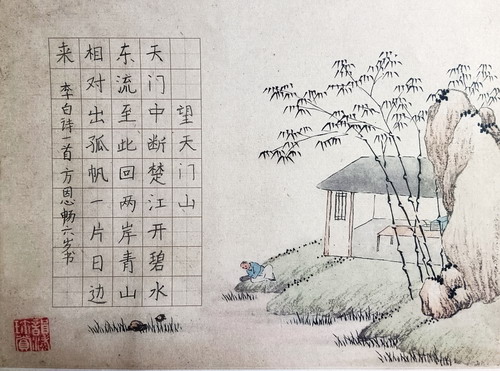 望天门山
天门中断楚江开碧水
东流至此回两岸青山
相对出孤帆一片日边
来
李白诗一首方恩畅六岁书